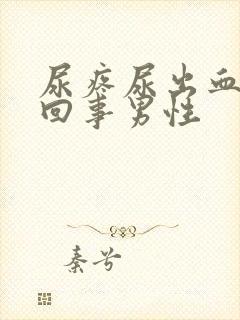 尿疼尿出血
回事男性
秦兮